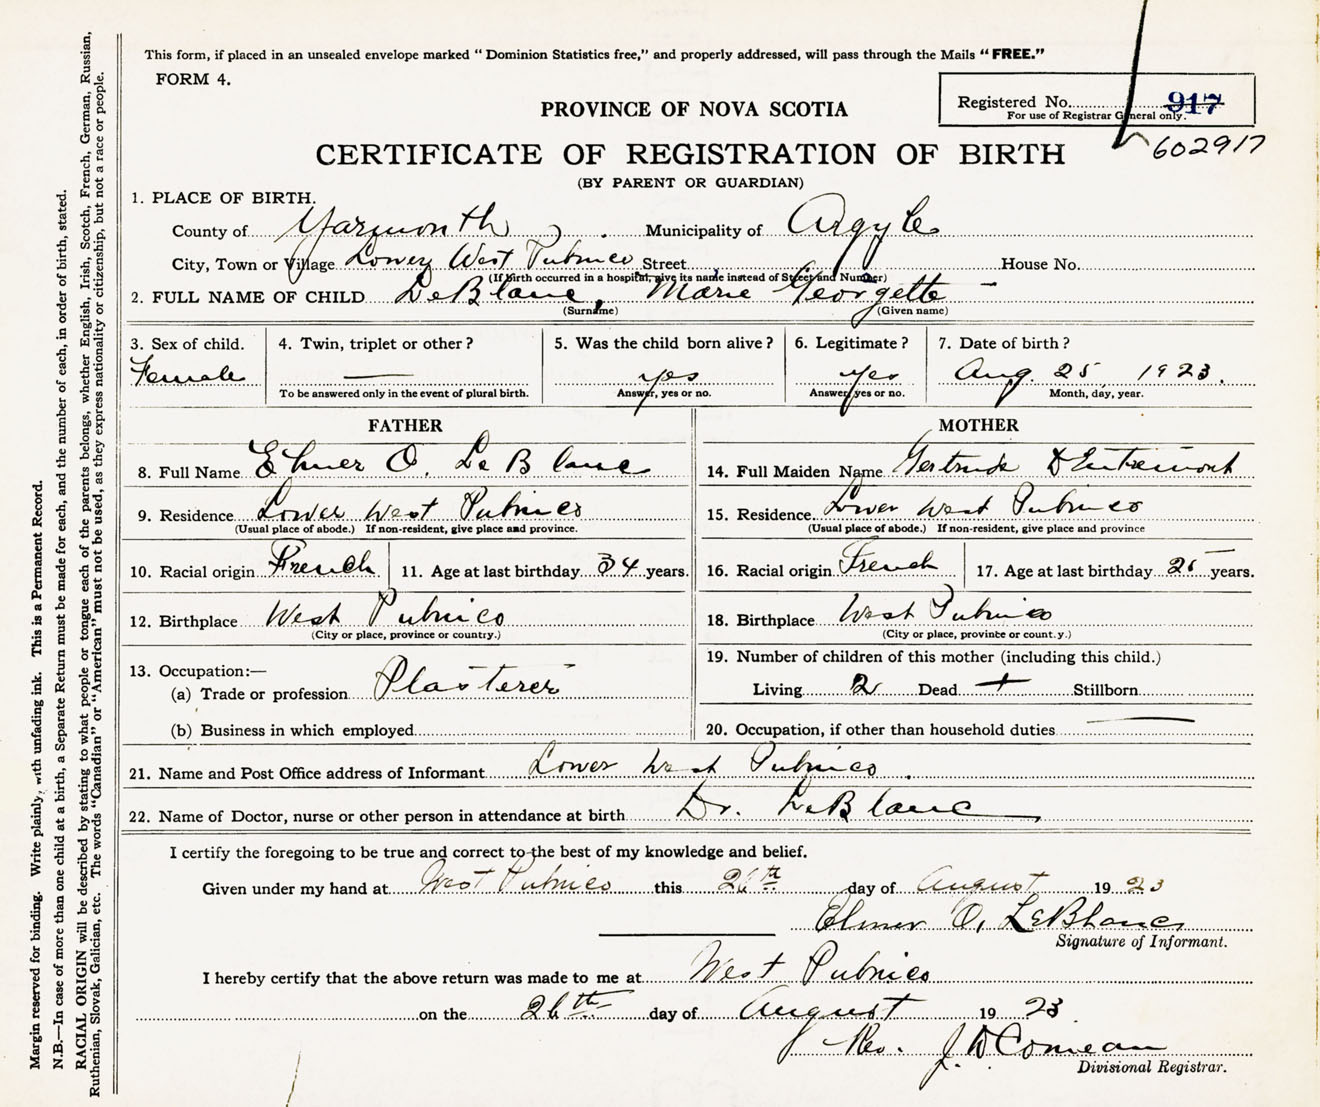 This form, if placed in an unsealed envelope marked “Dominion Statistics free,” and properly addressed, will pass through the Mails “FREE.”
FORM 4.
PROVINCE OF NOVA SCOTIA
Registered No. 917
For use of Registrar General only.
602917
CERTIFICATE OF REGISTRATION OF BIRTH
(BY PARENT OR GUARDIAN)
1. PLACE OF BIRTH.
County of Yarmouth Municipality of Argyle
City, Town or Village Lower West Pubnico Street House No.
(If birth occurred in a hospital, give its name instead of Street and Number)
2. FULL NAME OF CHILD LeBlanc, Marie Georgette
(Surname) (Given name)
3. Sex of child. 4. Twin, triplet or other? 5. Was the child born alive? 6. Legitimate? 7. Date of birth?
Female — yes yes Aug. 25 1923.
To be answered only in the event of plural birth. Answer, yes or no. Answer, yes or no. Month, day, year.
FATHER
8. Full Name Elmer O. LeBlanc
9. Residence Lower West Pubnico
(Usual place of abode.) If non-resident, give place and province.
10. Racial origin French 11. Age at last birthday 34 years.
12. Birthplace West Pubnico
(City or place, province or country.)
13. Occupation:—
(a) Trade or profession Plasterer
(b) Business in which employed
MOTHER
14. Full Maiden Name Gertrude D'Entremont
15. Residence Lower West Pubnico
(Usual place of abode.) If non-resident, give place and province
16. Racial origin French 17. Age at last birthday 25 years.
18. Birthplace West Pubnico
(City or place, province or count.y.)
19. Number of children of this mother (including this child.)
Living 2 Dead Stillborn
20. Occupation, if other than household duties —
21. Name and Post Office address of Informant Lower West Pubnico.
22. Name of Doctor, nurse or other person in attendance at birth Dr. LeBlanc
I certify the foregoing to be true and correct to the best of my knowledge and belief.
Given under my hand at West Pubnico this 26th day of August 1923
Elmer O. LeBlanc
Signature of Informant.
I hereby certify that the above return was made to me at West Pubnico
on the 26th day of August 1923
Rev. J. D Comeau
Divisional Registrar.
Margin reserved for binding. Write plainly, with unfading ink. This is a Permanent Record.
N.B.—In case of more than one child at a birth, a Separate Return must be made for each, and the number of each, in order of birth, stated.
RACIAL ORIGIN will be described by stating to what people or tongue each of the parents belongs, whether English, Irish, Scotch, French, German, Russian,
Ruthenian, Slovak, Galician, etc. The words “Canadian” or “American” must not be used, as they express nationality or citizenship, but not a race or people.